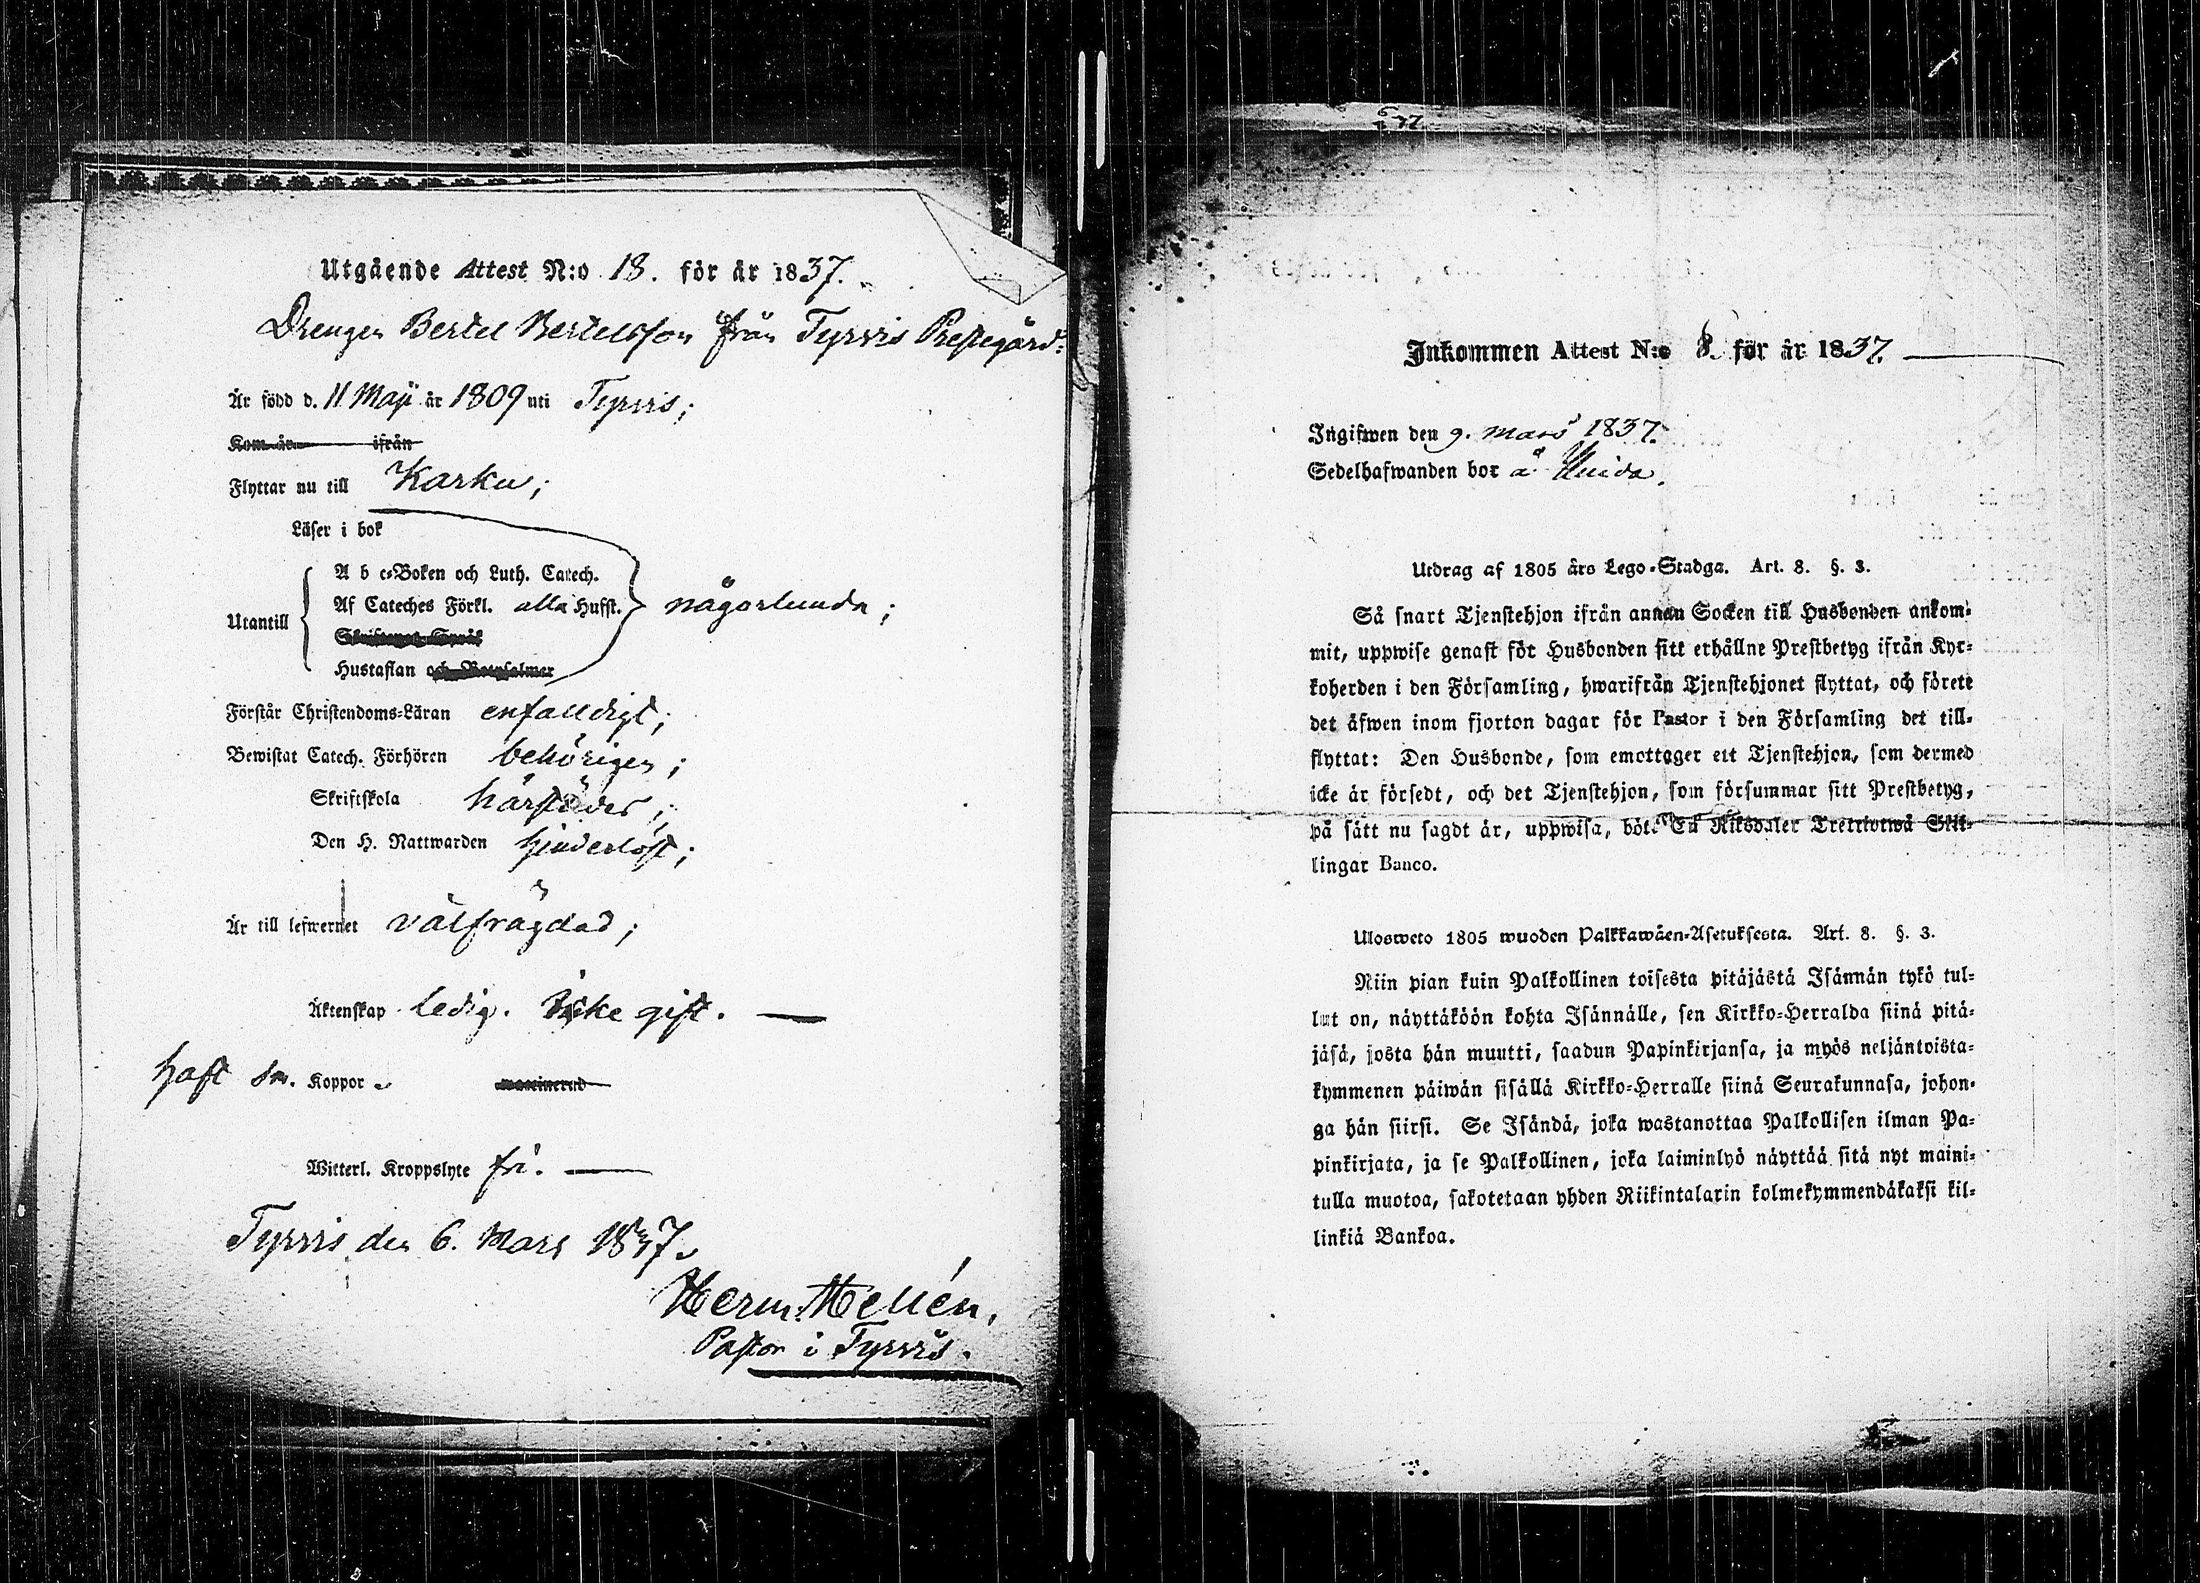 Utgående Attest N:o 18. för år 1837.
Drengen Bertel Bertelsson från Tyrvis Prestegård:
Är född d. 11 Maji år 1809 uti Tyrvis;
Kom år ifrån
Flyttar nu till Karku;
Läser i bok
A b c-Boken och Luth. Catech.
Af Cateches Förkl. alla Hufst.
Utantill någorlunda;
Hustaflan och Botpsalmer
Förstår Christendoms-Läran enfalldigt;
Bewistat Catech. Förhören behörigen;
Skriftskola härstädes;
Den H. Nattwarden hinderlöst;
Är till lefwernet välfrägdad;
Äktenskap ledig. Icke gift.
haft sm. Koppor
waccinerad
Witterl. Kroppslyte fri.
Tyrvis den 6. Mars 1837.
Herm. Hellén,
Pastor i Tyrvis.
6/3 37
Inkommen Attest N:o 8. för år 1837.
Ingifwen den 9. mars 1837.
Sedelhafwanden bor å
Utdrag af 1805 års Lego-Stadga. Art. 8. §. 3.
Så snart Tjenstehjon ifrån annan Socken till Husbonden ankom-
mit, uppwise genast för Husbonden sitt erhållne Prestbetyg ifrån Kyr-
koherden i den Församling, hwarifrån Tjenstehjonet flyttat, och förete
det äfwen inom fjorton dagar för Pastor i den Församling det till-
flyttat: Den Husbonde, som emottager ett Tjenstehjon, som dermed
icke är försedt, och det Tjenstehjon, som försummar sitt Prestbetyg,
på sätt nu sagdt är, uppwisa, böte En Riksdaler Trettiotwå Skil-
lingar Banco.
Ulosweto 1805 wuoden Palkkawäen-Asetuksesta. Art. 8. §. 3.
Niin pian kuin Palkollinen toisesta pitäjästä Isännän tykö tul-
lut on, näyttäköön kohta Isännälle, sen Kirkko-Herralda siinä pitä-
jäsä, josta hän muutti, saadun Papinkirjansa, ja myös neljäntoista-
kymmenen päiwän sisällä Kirkko-Herralle siinä Seurakunnasa, johon-
ga hän siirsi. Se Isändä, joka wastanottaa Palkollisen ilman Pa-
pinkirjata, ja se Palkollinen, joka laiminlyö näyttää sitä nyt maini-
tulla muotoa, sakotetaan yhden Riikintalarin kolmekymmendäkaksi kil-
linkiä Bankoa.